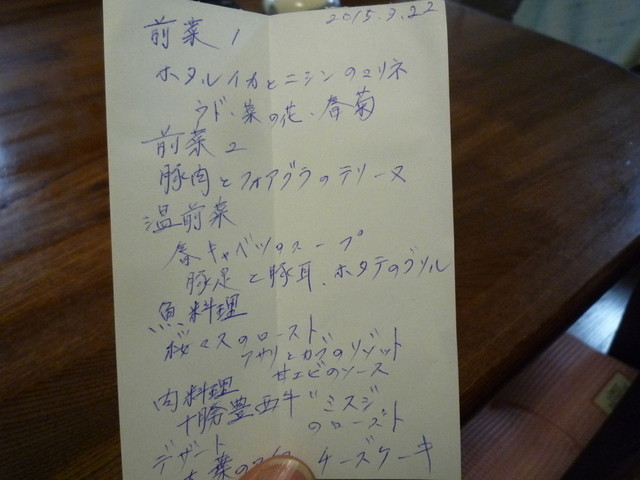 2015.3.22
前菜1
ホタルイカとニシンのマリネ
ウド・菜の花・春菊
前菜2
豚肉とフォアグラのテリーヌ
温前菜
春キャベツのスープ
豚足と豚耳、ホタテのグリル
魚料理
桜マスのロースト
アサリとカブのリゾット
甘エビのソース
肉料理
十勝豊西牛ミスジ
のロースト
デザート
チーズケーキ